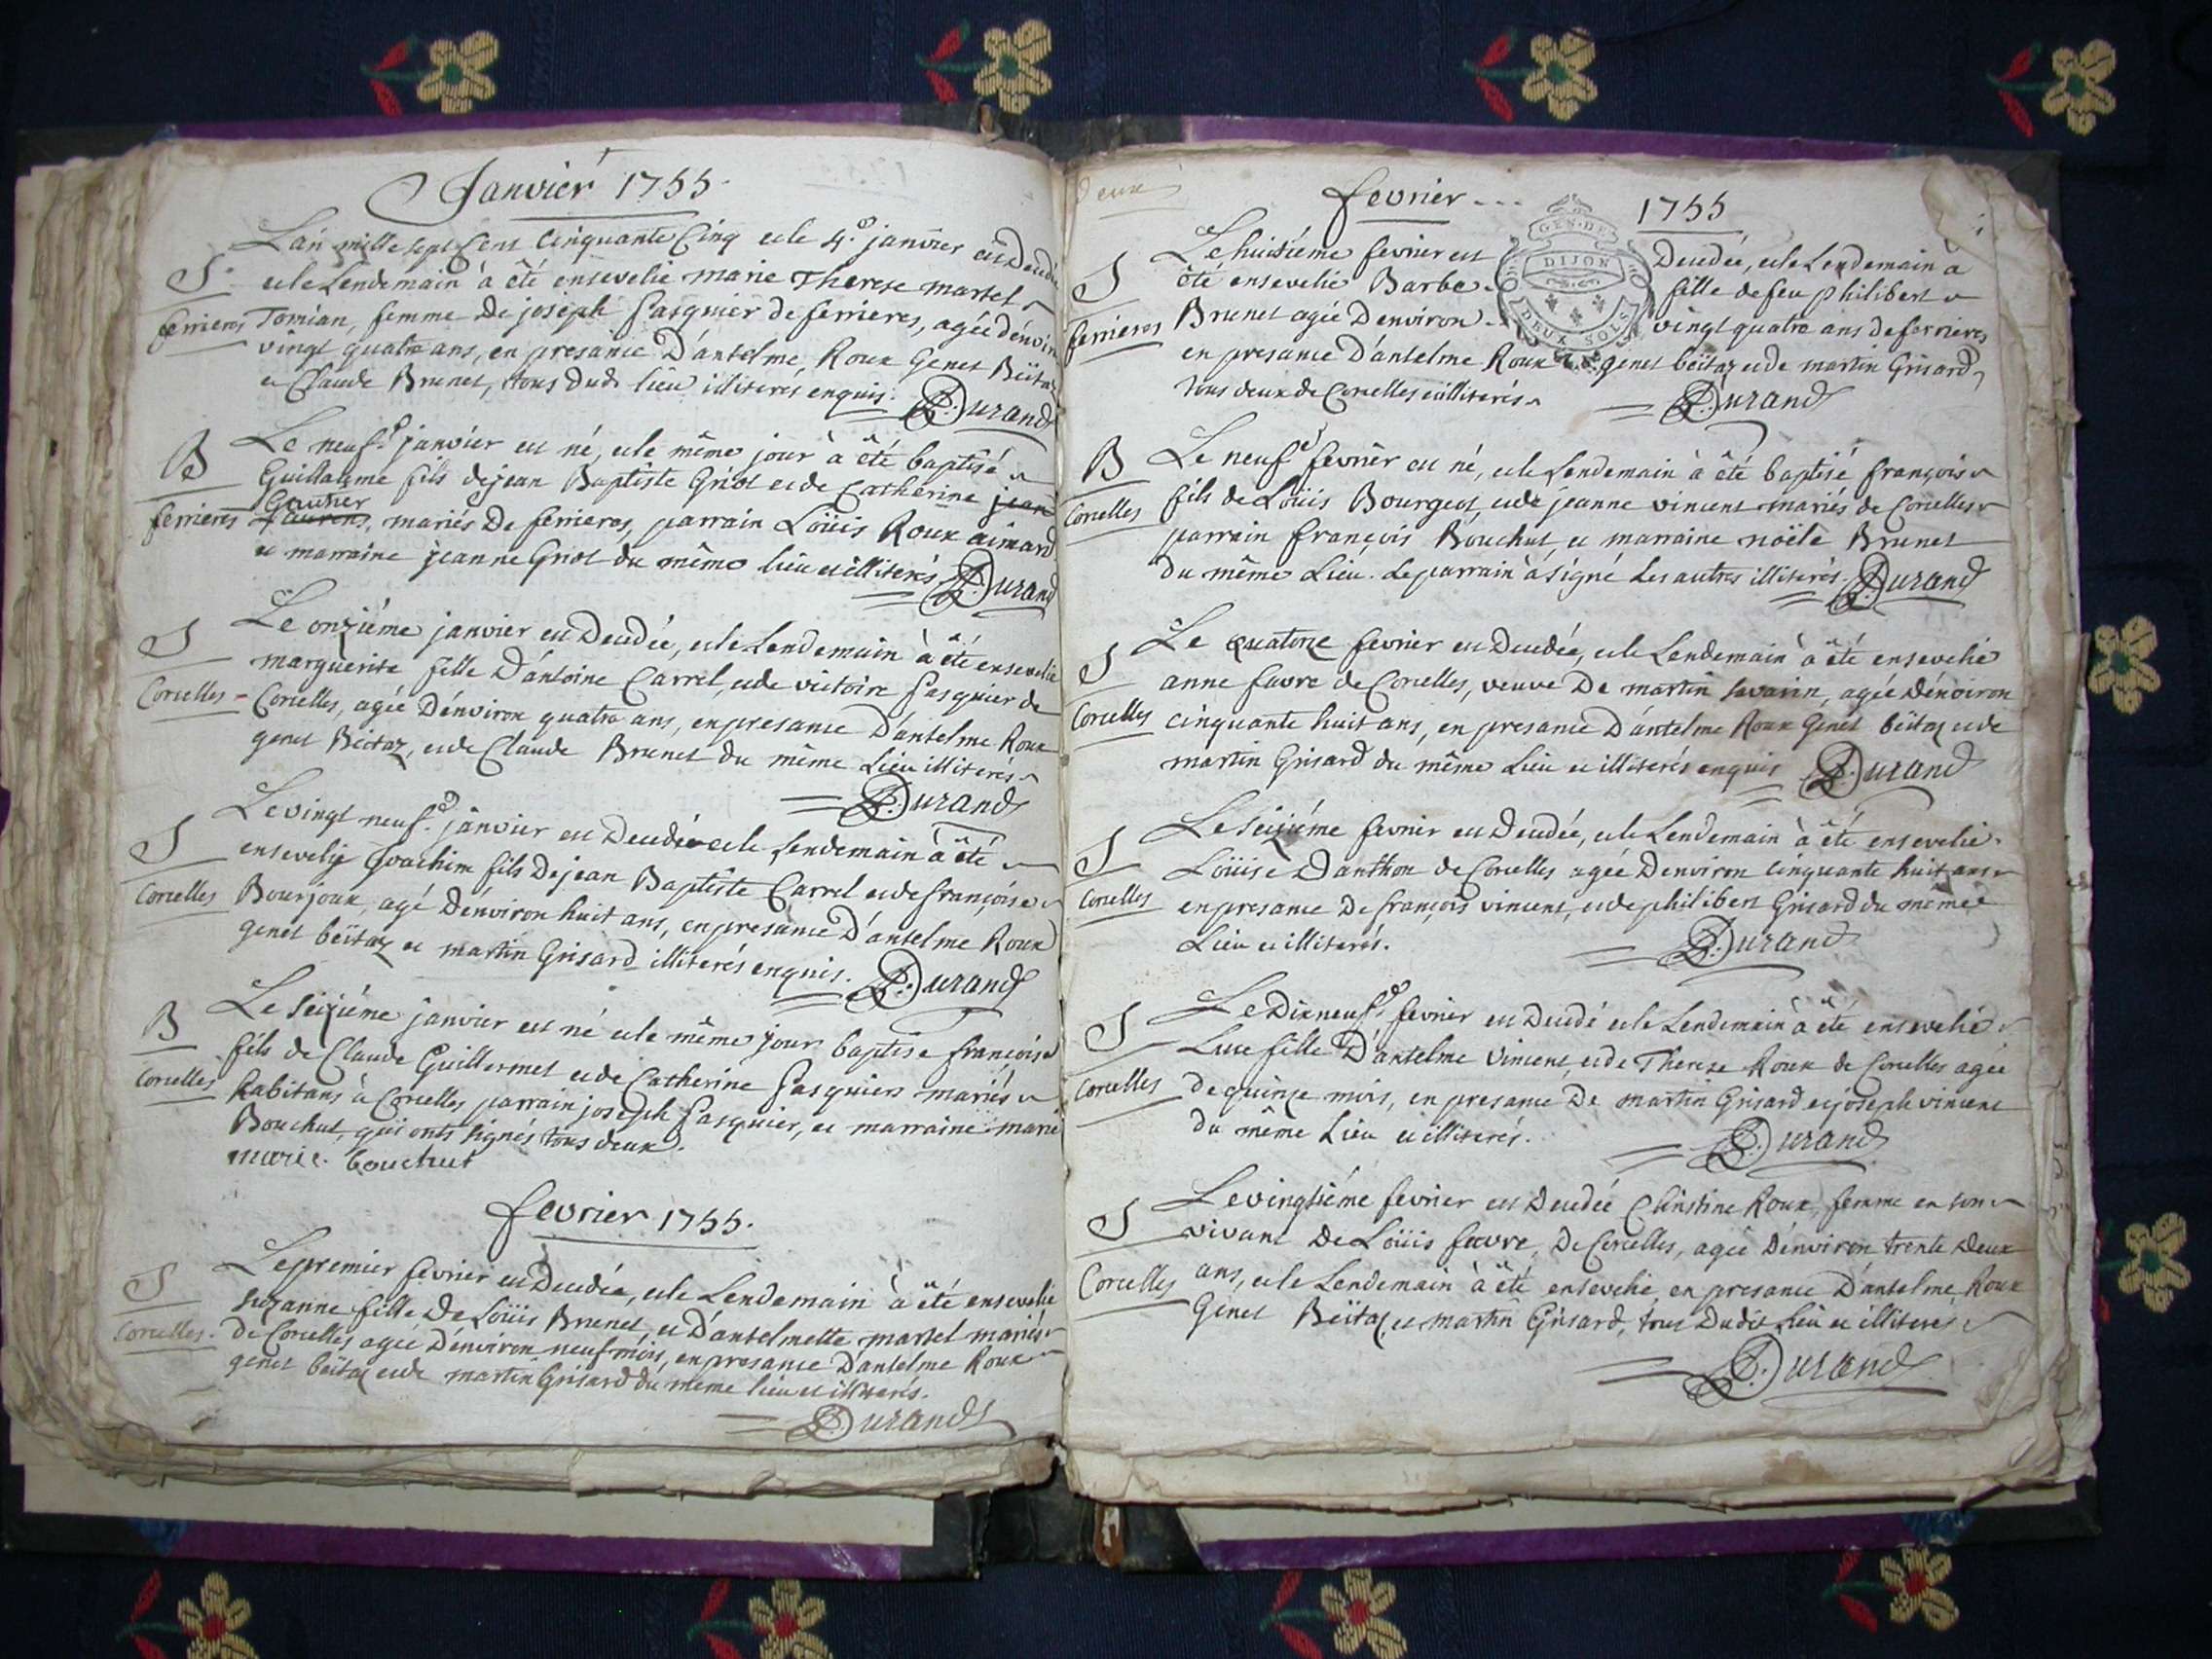 Janvier 1755.
L'an mille sept Cent Cinquante Cinq et le 4.e janvier est Decedée
S. et le Lendemain à êté ensevelie marie Therese martel
ferrieres Tomian, femme de joseph Pasquier de ferrieres, agée d'énviron
vingt quatre ans, en presance D'antelme Roux Genet Beïtaz
et Claude Brunet, tous dud. lieu illiterés enquis. Durand
Le neuf.e janvier est né, et le même jour à êté baptisé
B Guillaume fils de jean Baptiste Griot et de Catherine jean
Gautier
ferrieres Laurens, mariés De ferrieres, parrain Loüis Roux aimard
et marraine jeanne Griot du même lieu et illiterés. Durand
Le onziéme janvier est Decedée, et le Lendemain à êté ensevelie
S marguerite fille D'antoine Carrel, et de victoire Pasquier de
Corcelles - Corcelles, agée D'énviron quatre ans, en presance D'antelme Roux
genet Beitaz, et de Claude Brunet du même Lieu illiterés
Durand
Le vingt neuf.e janvier est Decedée et le Lendemain à êté
S ensevely Joachim fils De jean Baptiste Carrel et de françoise
Corcelles Bourjoux, agé D'énviron huit ans, en presance D'antelme Roux
genet beïtaz et martin Grisard illiterés enquis. Durand
Le seiziéme janvier est né et le même jour baptisé françois
B fils de Claude Guillermet et de Catherine Pasquier mariés
Corcelles habitans à Corcelles parrain joseph Pasquier, et marraine marie
Bouchut, qui onts signés tous deux.
marie bouchut
fevrier 1755.
Le premier fevrier est Decedée, et le Lendemain à êté ensevelie
S suzanne fille De Loüis Brunet, et D'antelmette martel mariés
Corcelles. de Corcelles agée D'énviron neuf mois, en presance D'antelme Roux
genet beïtaz et de martin Grisard du meme lieu et illiterés.
Durand
Deux
fevrier... 1755
GEN. DE
DIJON
DEUX SOLS
Le huitiéme fevrier est Decedée, et le Lendemain à
S êté ensevelie Barbe fille de feu philibert
ferrieres Brunet agée D'environ vingt quatre ans de ferrieres
en presance D'antelme Roux genet beïtaz et de martin Grisard,
tous deux de Corcelles et illiterés
Durand
B Le neuf.e fevrier est né, et le Lendemain à êté baptisé françois
Corcelles fils de Loüis Bourgeot, et de jeanne vincent mariés de Corcelles
parrain françois Bouchut, et marraine noële Brunet
du même Lieu. Le parrain à signé Les autres illiterés. Durand
Le quatorze fevrier est Decedée, et le Lendemain à êté ensevelie
S anne favre de Corcelles, veuve De martin savarin, agée D'énviron
Corcelles cinquante huit ans, en presance D'antelme Roux Genet beïtaz et de
martin Grisard du même Lieu et illiterés enquis Durand
Le seiziéme fevrier est Decedée, et le Lendemain à êté ensevelie
S Loüise Danthon de Corcelles agée D'environ cinquante huit ans
Corcelles en presance De françois vincent, et de philibert Grisard du même
Lieu et illiterés. Durand
Le Dix neuf.e fevrier est Decedé et le Lendemain à êté ensevelie
S Luce fille D'antelme vincent, et de Therese Roux de Corcelles agée
Corcelles de quinze mois, en presance De martin Grisard et joseph vincent
du même Lieu et illiterés. Durand
Le vingtiéme fevrier est Decedée Christine Roux, femme en son
S vivant De Loüis favre, De Corcelles, agée D'énviron trente deux
Corcelles ans, et le Lendemain à êté ensevelie, en presance D'antelme Roux
Genet Beïtaz, et martin Grisard, tous Dudit Lieu et illiterés
Durand